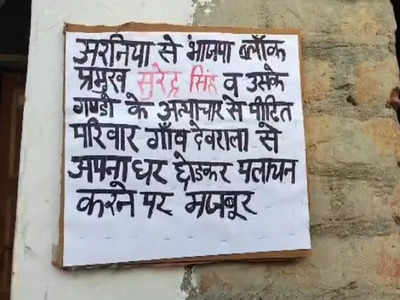 अरनिया से भाजपा ब्लॉक
प्रमुख सुरेद्र सिंह व उसके
गुण्डो के अत्याचार से पीडित
परिवार गाँव देवराला से
अपना घर छोडकर पलायन
करने पर मजबूर